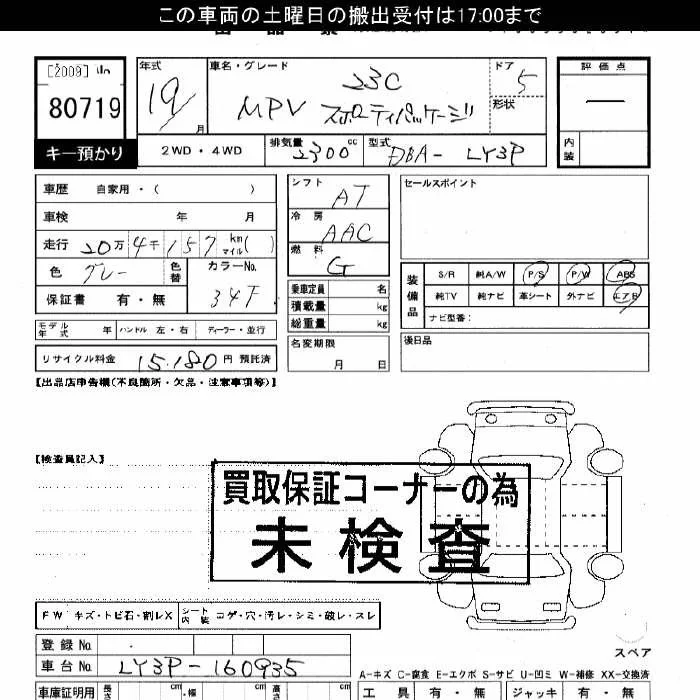 この車両の土曜日の搬出受付は17:00まで
[2009]
80719
キー預かり
年式 19 月
車名・グレード 23C
MPV スポーティパッケージ
ドア 5
形状
評価点
―
内装
2WD・4WD
排気量 2300 cc
型式 DBA- LY3P
車歴 自家用・( )
車検 年 月
走行 20万4千157 km マイル( )
色 グレー
色替
カラーNo. 34F
保証書 有・無
シフト AT
冷房 AAC
燃料 G
乗車定員 名
積載量 kg
総重量 kg
セールスポイント
装備品
S/R 純A/W P/S P/W ABS
純TV 純ナビ 革シート 外ナビ エアB
ナビ型番:
モデル年式 年 ハンドル 左・右 ディーラー・並行
名変期限 月 日
後日品
リサイクル料金 15.180 円 預託済
【出品店申告欄(不良箇所・欠品・注意事項等)】
【検査員記入】
買取保証コーナーの為
未検査
FW キズ・トビ石・割レX
シート内装 コゲ・穴・汚レ・シミ・破レ・スレ
スペア
登録No.
車台No. LY3P-160935
A-キズ C-腐食 E-エクボ S-サビ U-凹ミ W-補修 XX-交換済
車庫証明用 長さ cm 幅 cm 高さ cm
工具 有・無 ジャッキ 有・無